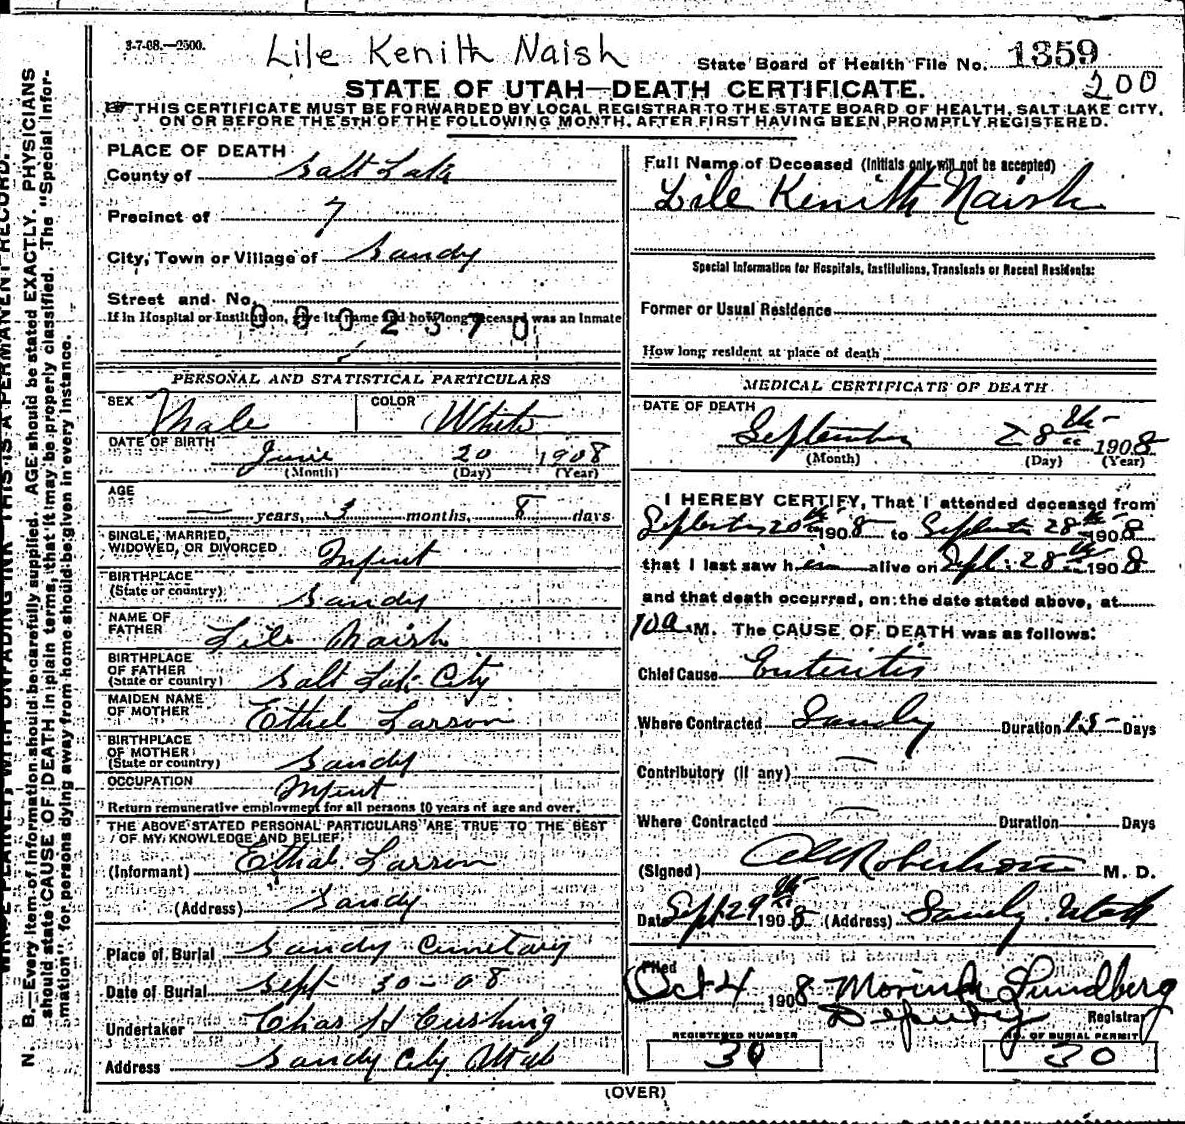 3-7-08.—2500.
Lile Kenith Naish
State Board of Health File No. 1359
200
STATE OF UTAH—DEATH CERTIFICATE.
THIS CERTIFICATE MUST BE FORWARDED BY LOCAL REGISTRAR TO THE STATE BOARD OF HEALTH, SALT LAKE CITY,
ON OR BEFORE THE 5TH OF THE FOLLOWING MONTH, AFTER FIRST HAVING BEEN PROMPTLY REGISTERED.
PLACE OF DEATH
County of Salt Lake
Precinct of 7
City, Town or Village of Sandy
Street and No.
If in Hospital or Institution, give its name and how long deceased was an Inmate
0002370
PERSONAL AND STATISTICAL PARTICULARS
SEX Male COLOR White
DATE OF BIRTH June 20 1908
(Month) (Day) (Year)
AGE
— years, 3 months, 8 days
SINGLE, MARRIED,
WIDOWED, OR DIVORCED Infent
BIRTHPLACE
(State or country) Sandy
NAME OF
FATHER Lile Naish
BIRTHPLACE
OF FATHER
(State or country) Salt Lake City
MAIDEN NAME
OF MOTHER Ethel Larson
BIRTHPLACE
OF MOTHER
(State or country) Sandy
OCCUPATION Infent
Return remunerative employment for all persons 10 years of age and over.
THE ABOVE STATED PERSONAL PARTICULARS ARE TRUE TO THE BEST
OF MY KNOWLEDGE AND BELIEF
(Informant) Ethal Larson
(Address) Sandy
Place of Burial Sandy Cemetary
Date of Burial Sept 30-08
Undertaker Chas H Cushing
Address Sandy City Utah
Full Name of Deceased (Initials only will not be accepted)
Lile Kenith Naish
Special Information for Hospitals, Institutions, Transients or Recent Residents:
Former or Usual Residence
How long resident at place of death
MEDICAL CERTIFICATE OF DEATH
DATE OF DEATH
September 28th 1908
(Month) (Day) (Year)
I HEREBY CERTIFY, That I attended deceased from
September 20th 1908 to September 28th 1908
that I last saw him alive on Sept. 28th 1908
and that death occurred, on the date stated above, at
10 a.M. The CAUSE OF DEATH was as follows:
Chief Cause Enteritis
Where Contracted Sandy Duration 15 Days
Contributory (if any) —
Where Contracted — Duration Days
(Signed) Robertson M. D.
Date Sept 29th 1908 (Address) Sandy Utah
Filed
Oct 4 1908 Lundberg
Deputy Registrar
REGISTERED NUMBER
30
NO. OF BURIAL PERMIT
30
(OVER)
WRITE PLAINLY, WITH UNFADING INK—THIS IS A PERMANENT RECORD.
N. B.—Every item of information should be carefully supplied. AGE should be stated EXACTLY. PHYSICIANS
should state CAUSE OF DEATH in plain terms, that it may be properly classified. The "Special Infor-
mation" for persons dying away from home should be given in every instance.